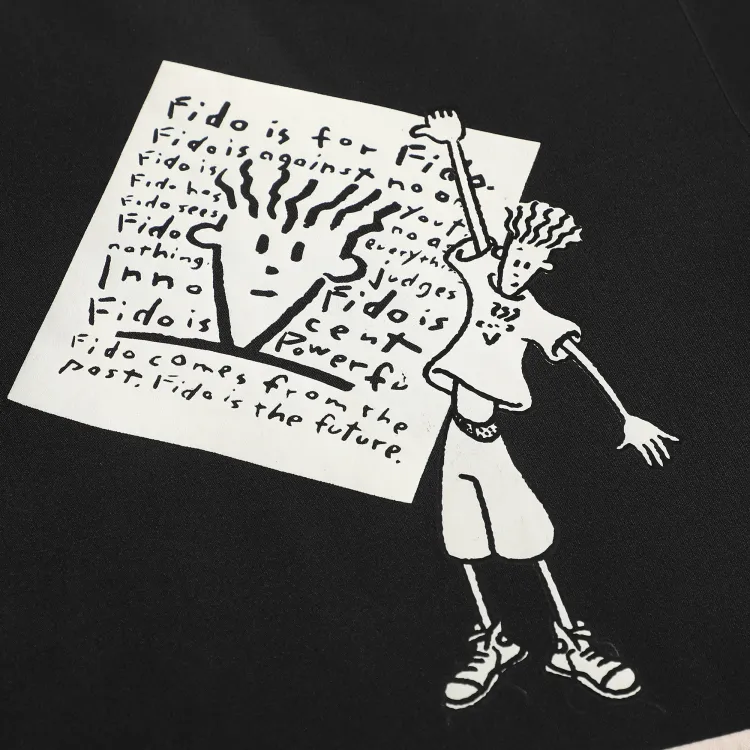 Fido is for Fido.
Fido is against no o
Fido is youth
Fido has no a
Fido sees everythi
Fido judges
nothing. Fido is
Inno cent
Fido is Powerfu
Fido comes from the
past. Fido is the future.